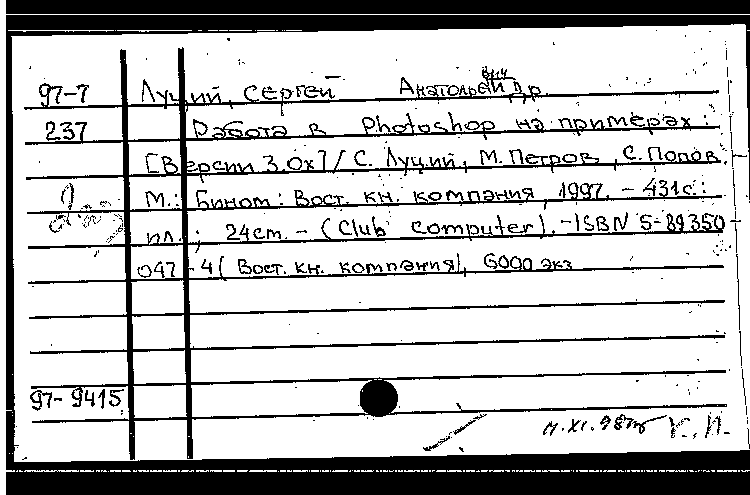 97-7 Луций, Сергей Анатольевич и др.
237 Работа в Photoshop на примерах:
[Версии 3.0х] / С. Луций, М. Петров, С. Попов.
М.: Бином: Вост. кн. компания, 1997. - 431с.:
ил.; 24cm. - (Club computer). - ISBN 5-89350-
047-4 (Вост. кн. компания), 6000 экз
97-9415
К.И.